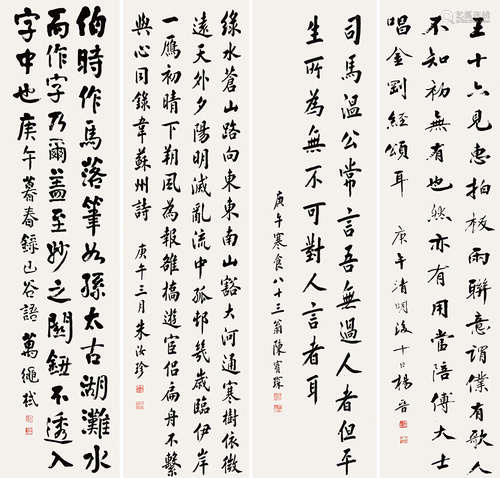 王十六見惠拍板兩聯意謂僕有歌人
不知初無有也然亦有用當陪傅大士
唱金剛經頌耳　庚午清明後十日　楊
司馬溫公常言吾無過人者但平
生所為無不可對人言者耳
庚午寒食八十三翁陳寶琛
綠水蒼山路向東東南山豁大河通寒樹依微
遠天外夕陽明滅亂流中孤邨幾歲臨伊岸
一鴈初晴下朔風為報雒橋遊宦侶扁舟不繫
與心同錄韋蘇州詩　庚午三月朱汝珍
伯時作馬落筆如孫太古湖灘水
而作字乃爾蓋至妙之關鈕不透入
字中也庚午暮春錄山谷語　萬繩栻